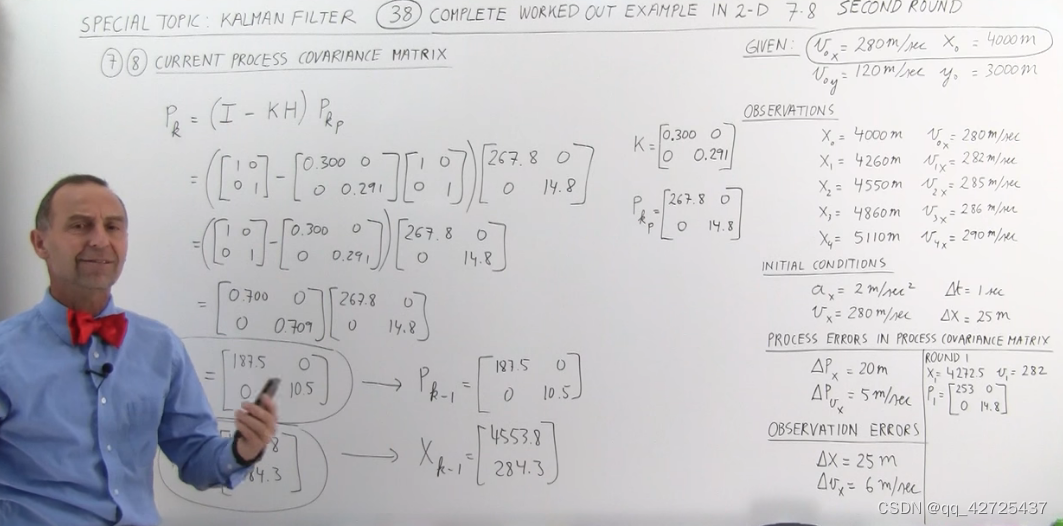 SPECIAL TOPIC: KALMAN FILTER (38) COMPLETE WORKED OUT EXAMPLE IN 2-D 7-8 SECOND ROUND
(7) (8) CURRENT PROCESS COVARIANCE MATRIX
P_k = (I - KH) P_kp
= ([1 0; 0 1] - [0.300 0; 0 0.291] [1 0; 0 1]) [267.8 0; 0 14.8]
= ([1 0; 0 1] - [0.300 0; 0 0.291]) [267.8 0; 0 14.8]
= [0.700 0; 0 0.709] [267.8 0; 0 14.8]
= [187.5 0; 0 10.5] → P_k-1 = [187.5 0; 0 10.5]
→ X_k-1 = [4553.8; 284.3]
K = [0.300 0; 0 0.291]
P_kp = [267.8 0; 0 14.8]
GIVEN: v_ox = 280 m/sec X_o = 4000 m
v_oy = 120 m/sec y_o = 3000 m
OBSERVATIONS
X_o = 4000 m v_ox = 280 m/sec
X_1 = 4260 m v_1x = 282 m/sec
X_2 = 4550 m v_2x = 285 m/sec
X_3 = 4860 m v_3x = 286 m/sec
X_4 = 5110 m v_4x = 290 m/sec
INITIAL CONDITIONS
a_x = 2 m/sec² Δt = 1 sec
v_x = 280 m/sec ΔX = 25 m
PROCESS ERRORS IN PROCESS COVARIANCE MATRIX
ΔP_x = 20 m
ΔP_vx = 5 m/sec
ROUND 1
X_1 = 4272.5 v_1 = 282
P_1 = [253 0; 0 14.8]
OBSERVATION ERRORS
ΔX = 25 m
Δv_x = 6 m/sec
CSDN @qq_42725437